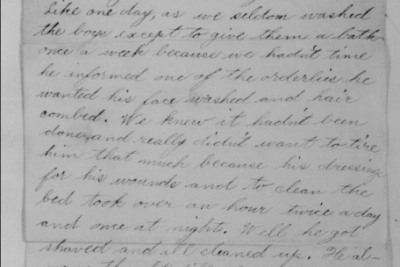 like one day, as we seldom washed
the boys except to give them a bath
once a week because we hadn't time
he informed one of the orderlies he
wanted his face washed and hair
combed. We knew it hadn't been
done, and really didn't want to tire
him that much because his dressings
for his wounds and to clean the
bed took over an hour twice a day
and once at nights. Well he got
shaved and all cleaned up. He al-